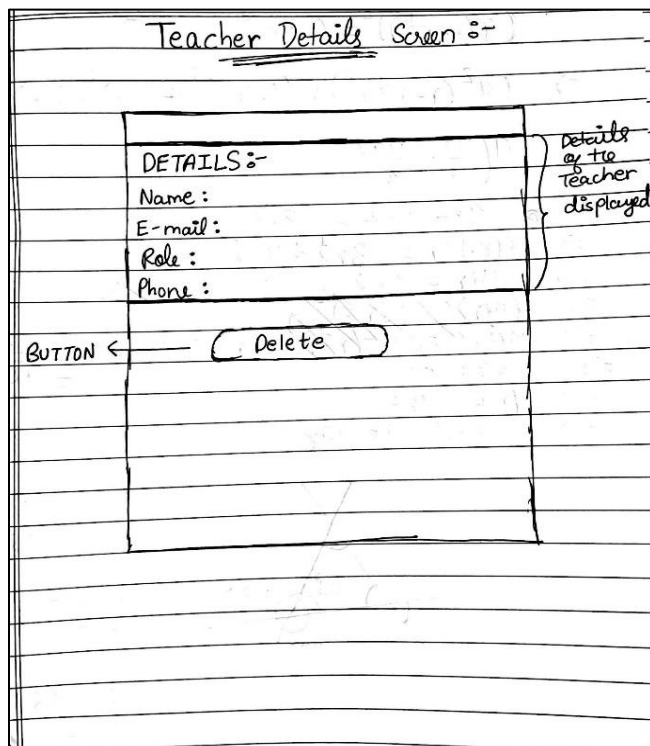 Teacher Details Screen :-
DETAILS :-
Name :
E-mail :
Role :
Phone :
Details
of the
Teacher
displayed
BUTTON
Delete